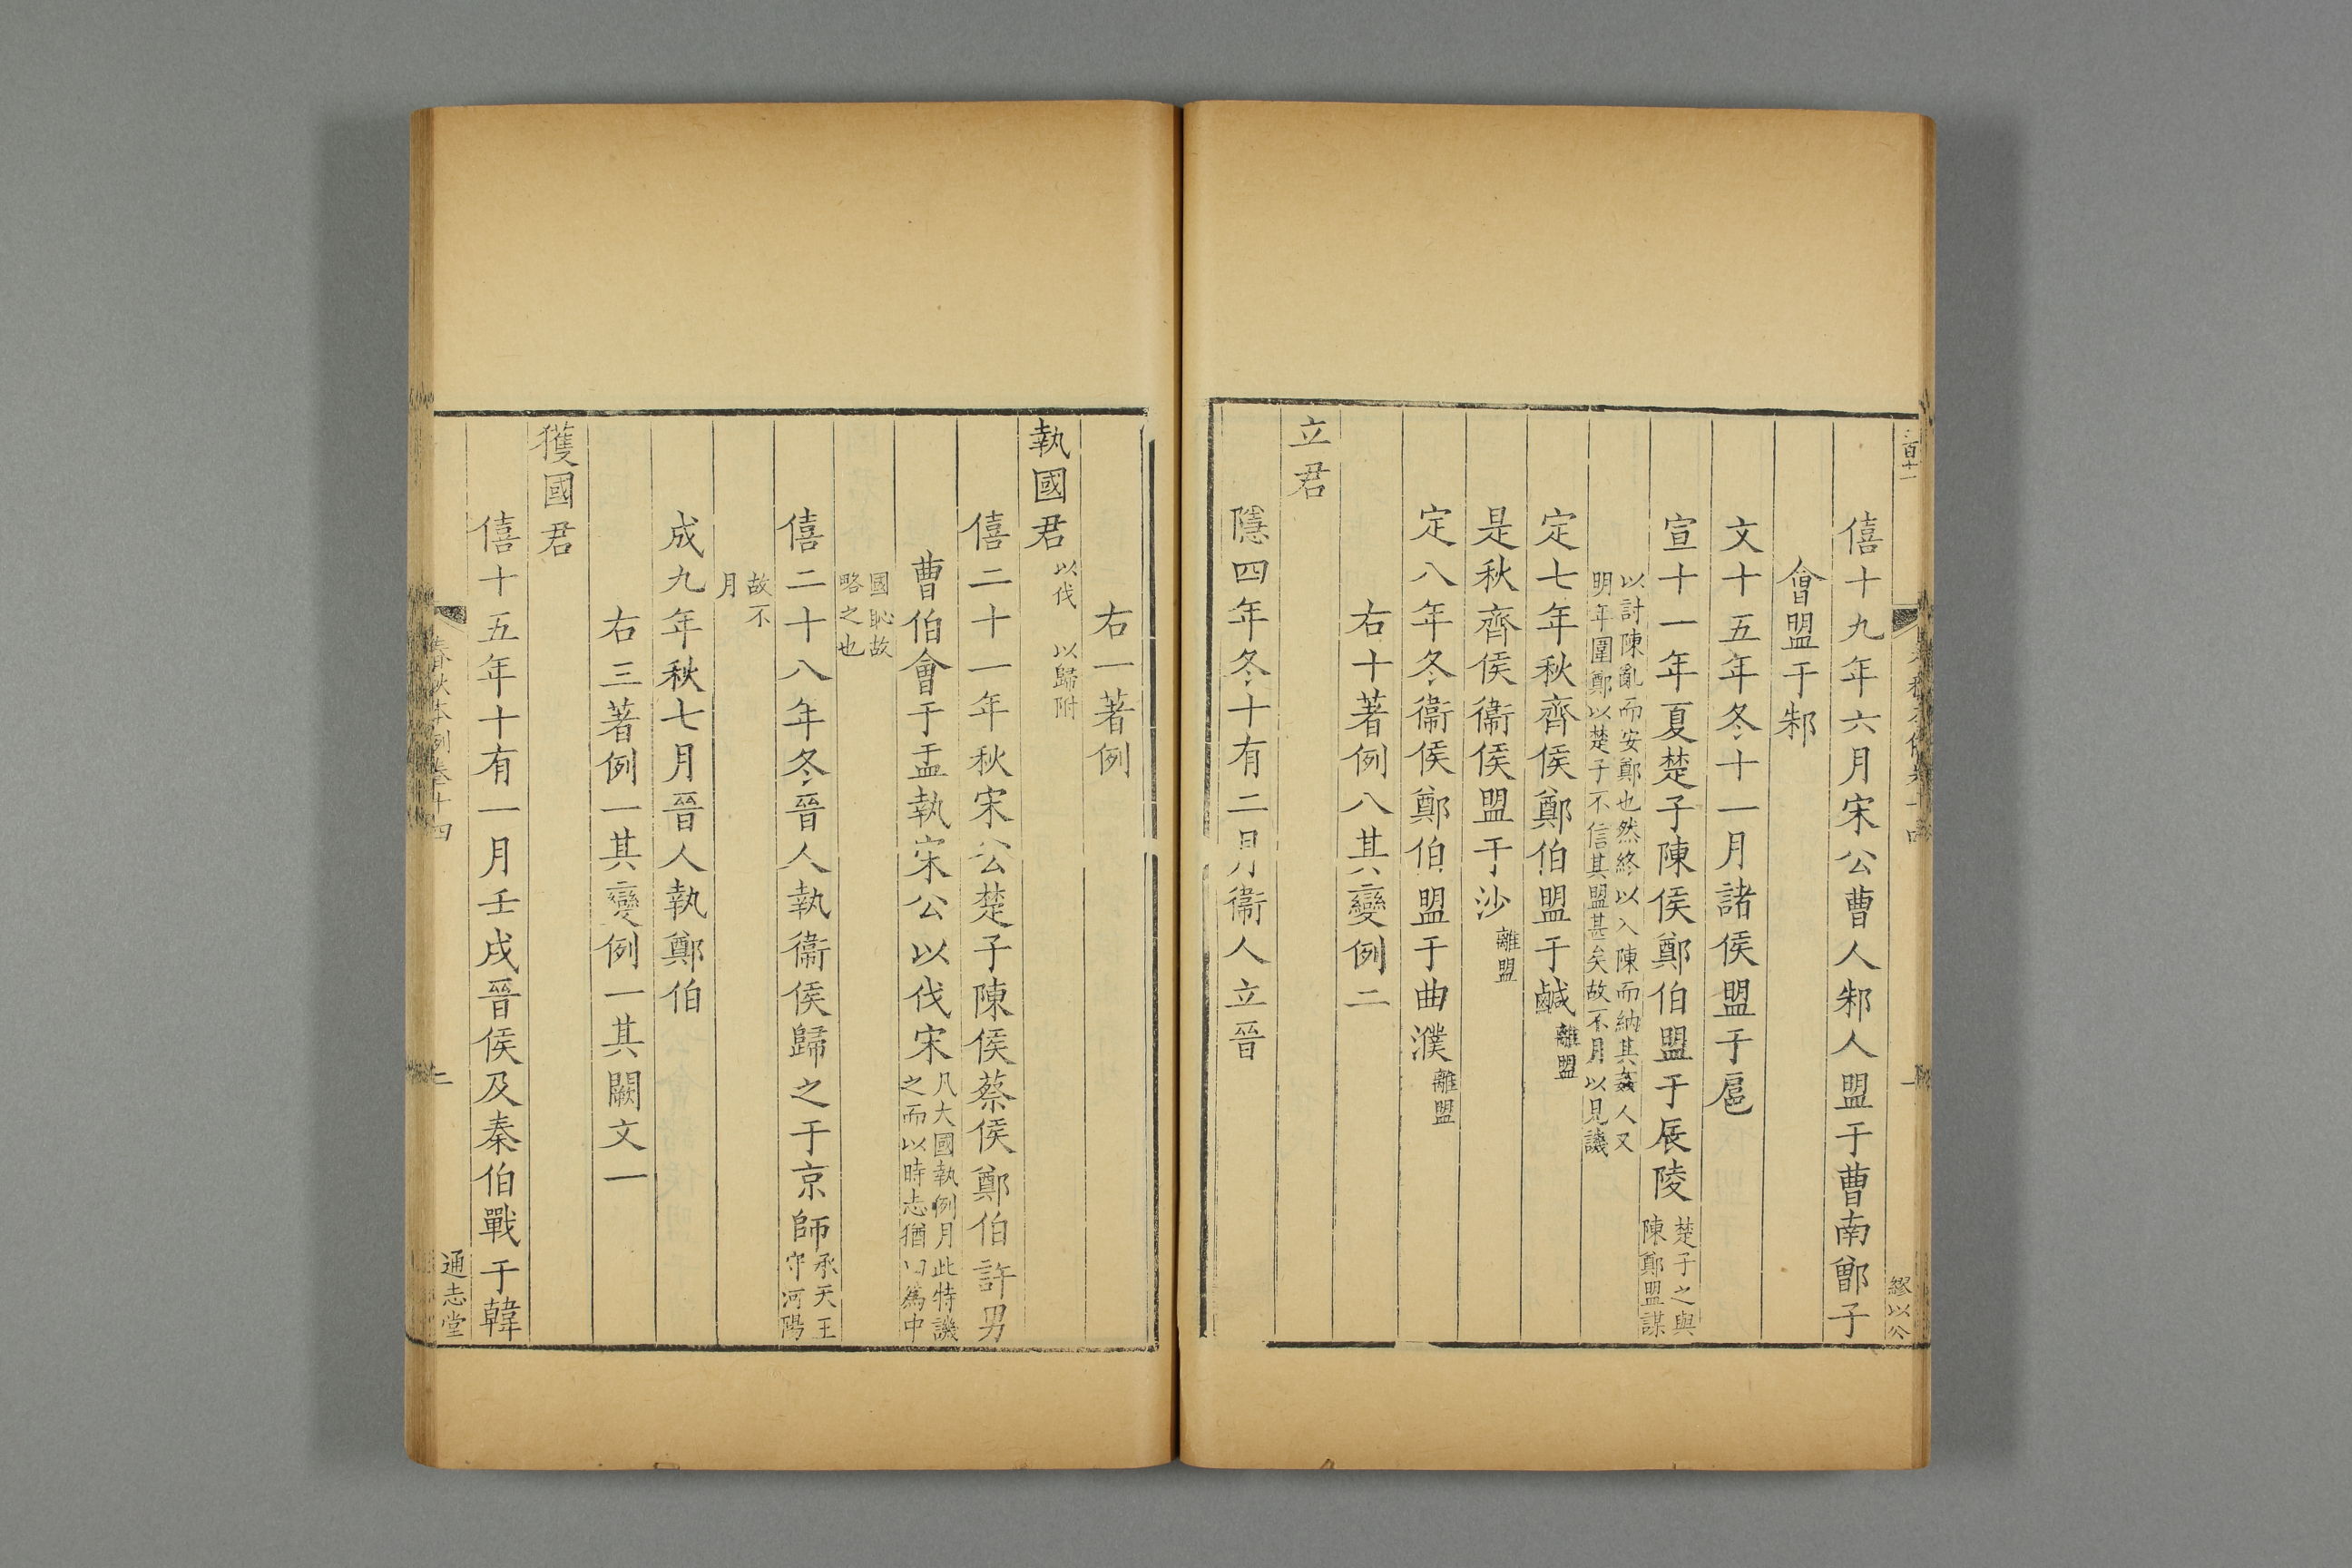 僖十九年六月宋公曹人邾人盟于曹南鄫子
會盟于邾
文十五年冬十一月諸侯盟于扈
宣十一年夏楚子陳侯鄭伯盟于辰陵楚子之與陳鄭盟謀
以討陳亂而安鄭也然終以入陳而納其姦人又
明年圍鄭以楚子不信其盟甚矣故不月以見譏
定七年秋齊侯鄭伯盟于鹹離盟
是秋齊侯衞侯盟于沙離盟
定八年冬衞侯鄭伯盟于曲濮離盟
右十著例八其變例二
立君
隱四年冬十有二月衞人立晉
右一著例
執國君以伐 以歸附
僖二十一年秋宋公楚子陳侯蔡侯鄭伯許男
曹伯會于盂執宋公以伐宋凡大國執例月此特譏之而以時志猶以為中
國恥故
略之也
僖二十八年冬晉人執衞侯歸之于京師承天王守河陽
故不
月
成九年秋七月晉人執鄭伯
右三著例一其變例一其闕文一
獲國君
僖十五年十有一月壬戌晉侯及秦伯戰于韓
春秋本例卷十四
二
通志堂